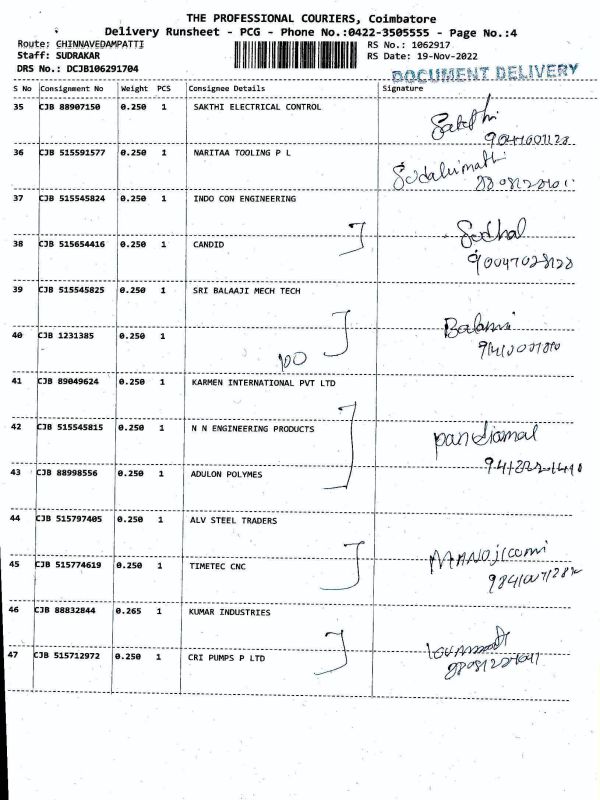 THE PROFESSIONAL COURIERS, Coimbatore
Delivery Runsheet - PCG - Phone No.:0422-3505555 - Page No.:4
Route: CHINNAVEDAMPATTI RS No.: 1062917
Staff: SUDRAKAR RS Date: 19-Nov-2022
DRS No.: DCJB106291704
DOCUMENT DELIVERY
S No Consignment No Weight PCS Consignee Details Signature
35 CJB 88907150 0.250 1 SAKTHI ELECTRICAL CONTROL
36 CJB 515591577 0.250 1 NARITAA TOOLING P L
37 CJB 515545824 0.250 1 INDO CON ENGINEERING
38 CJB 515654416 0.250 1 CANDID
39 CJB 515545825 0.250 1 SRI BALAAJI MECH TECH
40 CJB 1231385 0.250 1
41 CJB 89049624 0.250 1 KARMEN INTERNATIONAL PVT LTD
42 CJB 515545815 0.250 1 N N ENGINEERING PRODUCTS
43 CJB 88998556 0.250 1 ADULON POLYMES
44 CJB 515797405 0.250 1 ALV STEEL TRADERS
45 CJB 515774619 0.250 1 TIMETEC CNC
46 CJB 88832844 0.265 1 KUMAR INDUSTRIES
47 CJB 515712972 0.250 1 CRI PUMPS P LTD